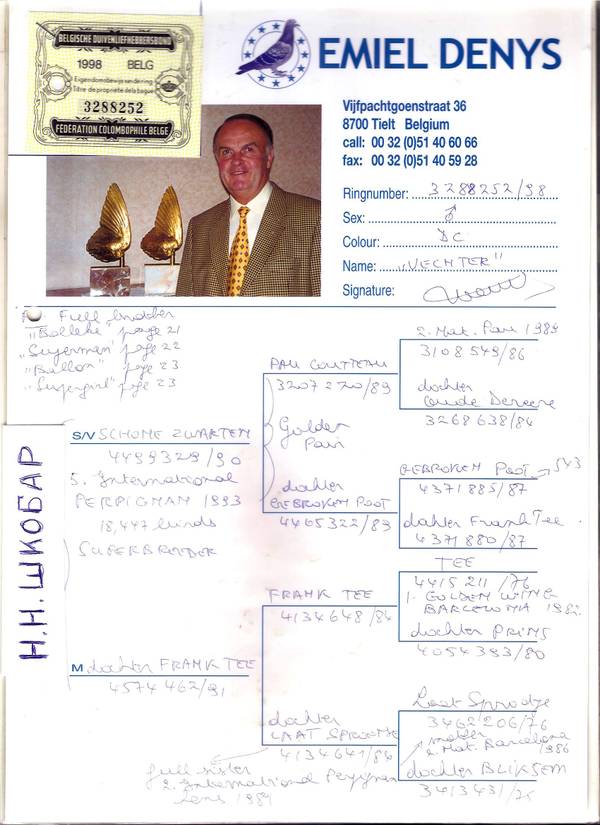 BELGISCHE DUIVENLIEFHEBBERSBOND
1998 BELG
Eigendomsbewijs van de ring
Titre de propriété de la bague
3288252
FEDERATION COLOMBOPHILE BELGE
EMIEL DENYS
Vijfpachtgoenstraat 36
8700 Tielt Belgium
call: 00 32 (0)51 40 60 66
fax: 00 32 (0)51 40 59 28
Ringnumber: 3288252/98
Sex: ♂
Colour: DC
Name: „VECHTER"
Signature:
Full brother
"Bolleke" page 21
"Superman" page 22
"Bullon" page 23
"Supergirl" page 23
Н.Н. ШКОБАР
S/V SCHONE ZWARTEN
4499329/90
5. International
PERPIGNAN 1993
18,447 birds
SUPERBREEDER
M. dochter FRANK TEE
4574462/91
3207220/89
Golden
Pair
dochter
GEBROKEN POOT
4465322/89
FRANK TEE
4134648/84
dochter
LAAT SPROETJE
4134641/84
full sister
2. International Perpignan
hens 1984
2. Nat. Pau 1989
3108549/86
dochter
Oude Dereere
3268638/84
GEBROKEN POOT → 543
4371885/87
dochter Frank Tee
4371880/87
TEE
4415211/76
1. GOLDEN WING
BARCELONA 1982
dochter PRINS
4054393/80
Laat Sproetje
3462206/76
2. Nat. Barcelona
1986
dochter BLIKSEM
3413431/75